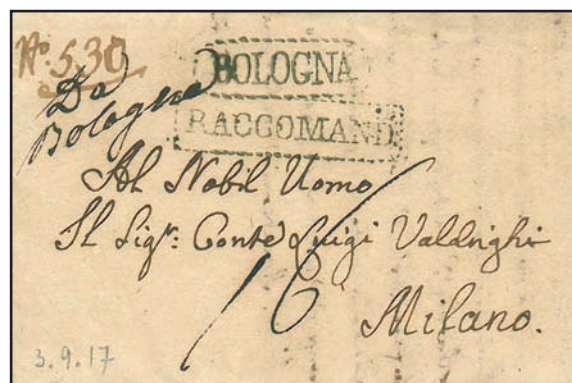 No. 530
BOLOGNA
Da
Bologna
RACCOMAND.
Al Nobil Uomo
Il Sigr: Conte Luigi Valdrighi
16
Milano.
3.9.17